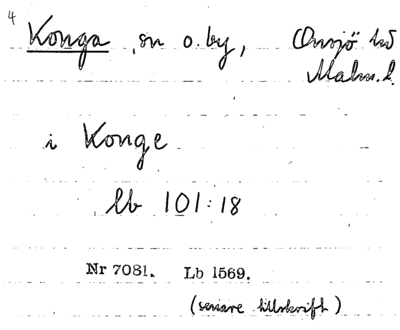 4
Konga, sn o. by, Onsjö hd
Malm. l.
i Konge
lb 101:18
Nr 7081. Lb 1569.
(senare tillskrift)